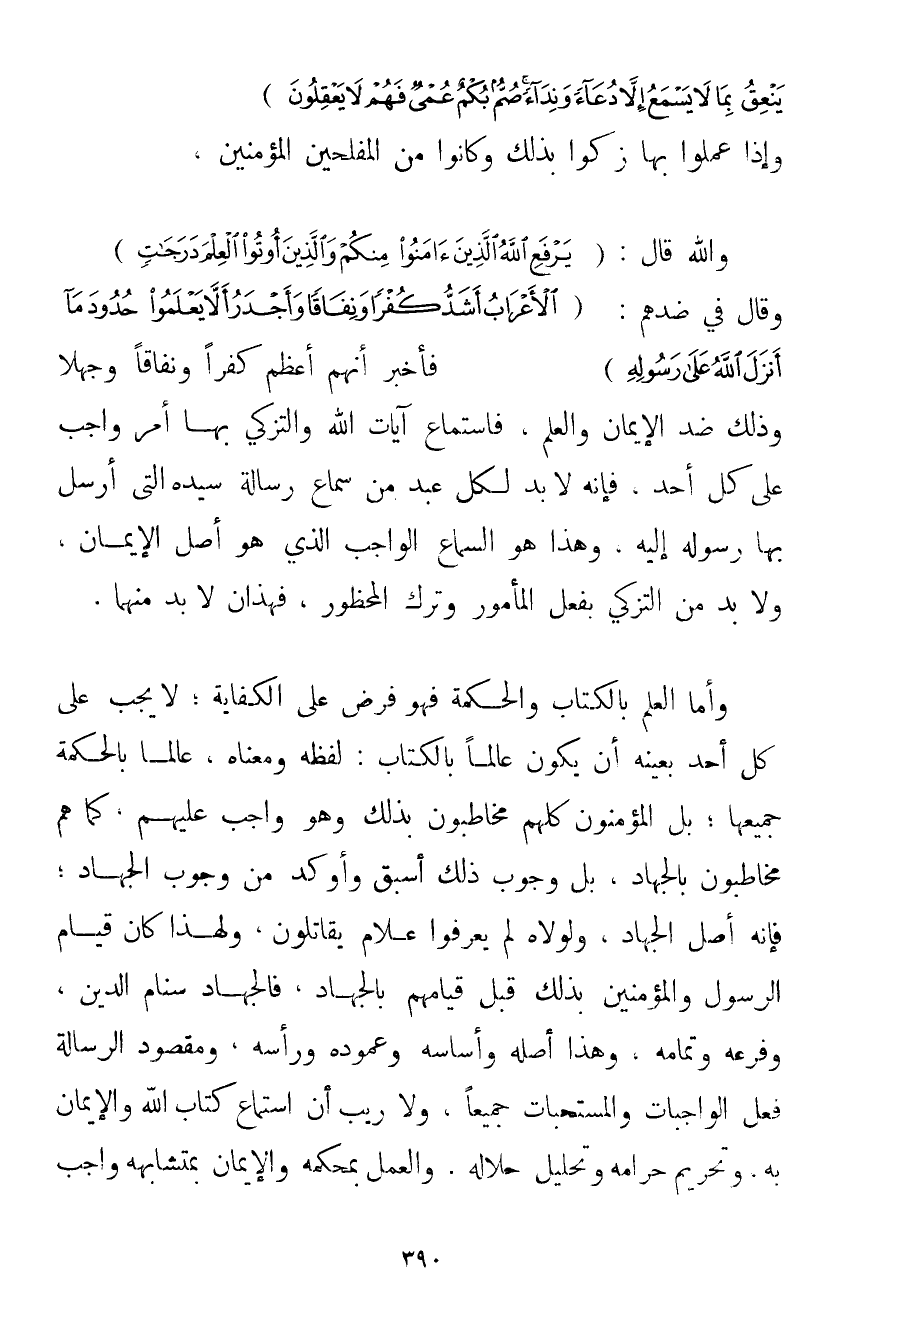 يَنْعِقُ بِمَا لَا يَسْمَعُ إِلَّا دُعَآءً وَنِدَآءً صُمٌّ بُكْمٌ عُمْىٌ فَهُمْ لَا يَعْقِلُونَ )
وإذا عملوا بها زكوا بذلك وكانوا من المفلحين المؤمنين ،
والله قال : ( يَرْفَعِ ٱللَّهُ ٱلَّذِينَ ءَامَنُوا۟ مِنكُمْ وَٱلَّذِينَ أُوتُوا۟ ٱلْعِلْمَ دَرَجَٰتٍ )
وقال في ضدهم : ( ٱلْأَعْرَابُ أَشَدُّ كُفْرًا وَنِفَاقًا وَأَجْدَرُ أَلَّا يَعْلَمُوا۟ حُدُودَ مَآ
أَنزَلَ ٱللَّهُ عَلَىٰ رَسُولِهِ ) فأخبر أنهم أعظم كفراً ونفاقاً وجهلا
وذلك ضد الإيمان والعلم ، فاستماع آيات الله والتزكي بهـا أمر واجب
على كل أحد ، فإنه لا بد لكل عبد من سماع رسالة سيده التى أرسل
بها رسوله إليه ، وهذا هو السماع الواجب الذي هو أصل الإيمـان ،
ولا بد من التزكي بفعل المأمور وترك المحظور ، فهذان لا بد منهما .
وأما العلم بالكتاب والحكمة فهو فرض على الكفاية ؛ لا يجب على
كل أحد بعينه أن يكون عالمـاً بالكتاب : لفظه ومعناه ، عالمـا بالحكمة
جميعها ؛ بل المؤمنون كلهم مخاطبون بذلك وهو واجب عليهـم ، كما هم
مخاطبون بالجهاد ، بل وجوب ذلك أسبق وأوكد من وجوب الجهـاد ؛
فإنه أصل الجهاد ، ولولاه لم يعرفوا عـلام يقاتلون ، ولهـذا كان قيـام
الرسول والمؤمنين بذلك قبل قيامهم بالجهـاد ، فالجهـاد سنام الدين ،
وفرعه وتمامه ، وهذا أصله وأساسه وعموده ورأسه ، ومقصود الرسالة
فعل الواجبات والمستحبات جميعاً ، ولا ريب أن استماع كتاب الله والإيمان
به . وتحريم حرامه وتحليل حلاله . والعمل بمحكمه والإيمان بمتشابهه واجب
٣٩٠